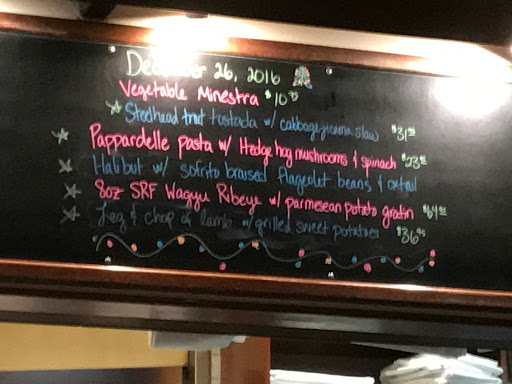 December 26, 2016
Vegetable Minestra $10.95
Steelhead trout tostada w/ cabbage-jicama slaw $31
Pappardelle pasta w/ Hedge hog mushrooms & spinach $23
Halibut w/ sofrito braised flageolet beans & oxtail
8oz SRF Wagyu Ribeye w/ parmesean potato gratin $64
Leg & chop of lamb w/ grilled sweet potatoes $36